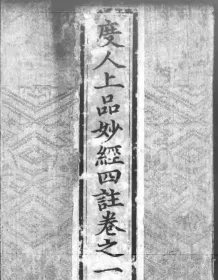 度人上品妙經四註卷之一